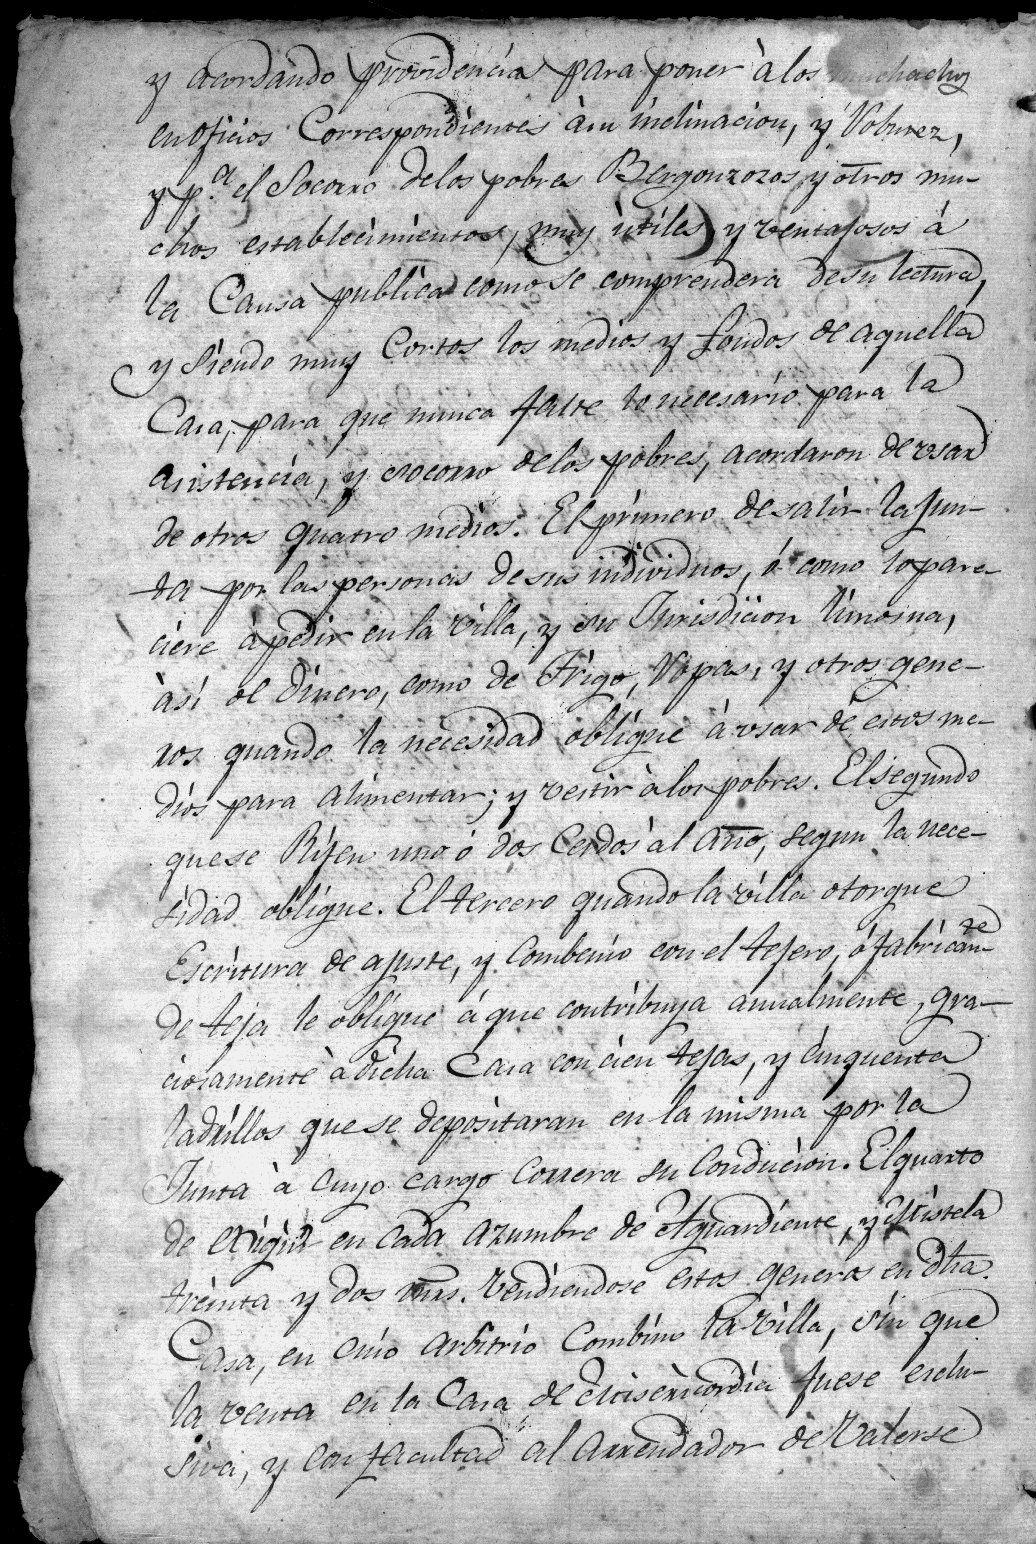 y acordando providencias para poner à los muchachos
en oficios Correspondientes à su inclinacion, y Robustez,
y p.ª el Socorro delos pobres Bergonzozos y otros mu-
chos establecimientos, muy ùtiles y ventajosos á
la Causa publica como se comprendera de su lectura,
y Siendo muy Cortos los medios y fondos de aquella
Casa, para que nunca falte lo necesario para la
asistencia, y socorro delos pobres, acordaron de vsar
de otros quatro medios. El primero de salir la Jun-
ta por las personas de sus individuos, ó como lo pare-
ciere à pedir en la villa, y su Jurisdicion limosna,
àsi de Dinero, como de Trigo, Ropas, y otros gene-
ros quando la necesidad obligue á vsar de estos me-
dios para alimentar; y vestir à los pobres. El segundo
que se Rifen uno ó dos Cerdos àl año, segun la nece-
sidad obligue. El tercero quando la villa otorgue
Escritura de ajuste, y Combenio con el tejero, ó fabricante
de teja le obligue á que contribuya anualmente, gra-
ciosamente à dicha Casa con cien tejas, y cinquenta
ladrillos que se depositaran en la misma por la
Junta à cuyo cargo Correra su Conducion. El quarto
de exigir en cada azumbre de Aguardiente, y Mistela
treinta y dos mrs. vendiendose estos generos en dha.
Casa, en cuio arbitrio Combino la villa, sin que
la venta en la Casa de Misericordia fuese esclu-
siva, y con facultad al Arrendador de Valerse